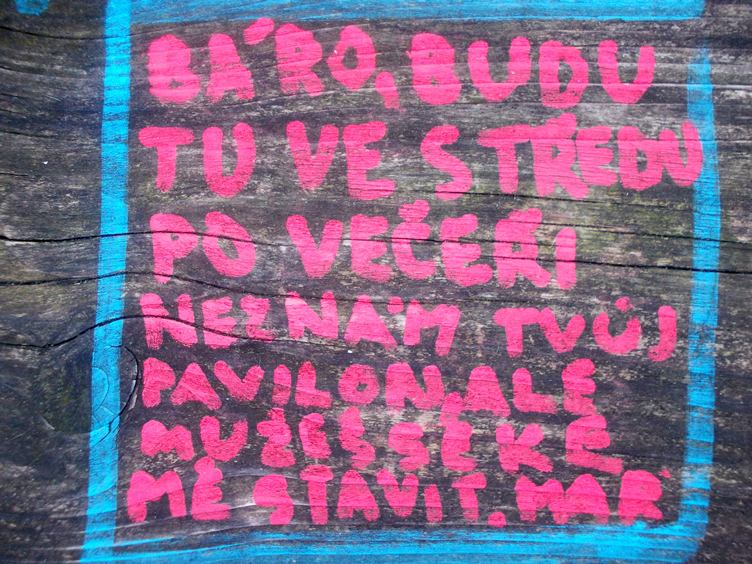 BÁRO, BUDU
TU VE STŘEDU
PO VEČEŘI
NEZNÁM TVŮJ
PAVILON, ALE
MUŽEŠ SE KE
MĚ STAVIT. MAR